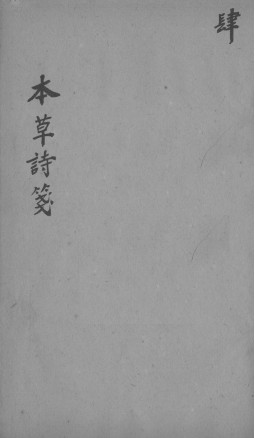 肆
本草詩箋